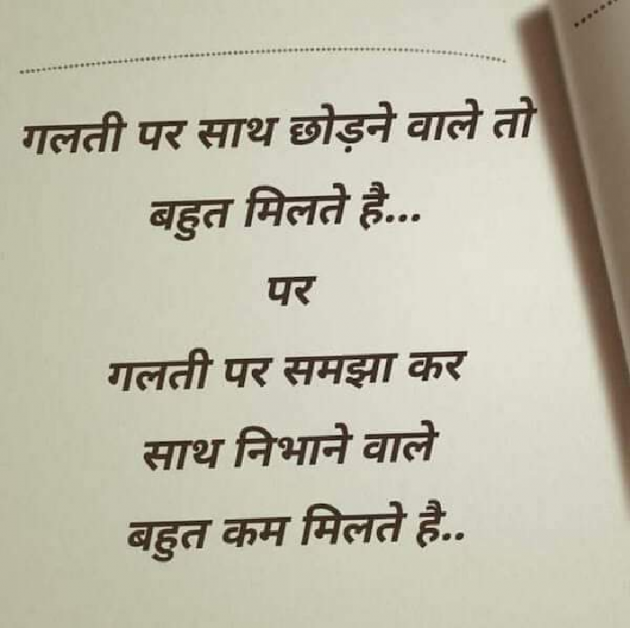 गलती पर साथ छोड़ने वाले तो
बहुत मिलते है...
पर
गलती पर समझा कर
साथ निभाने वाले
बहुत कम मिलते है..